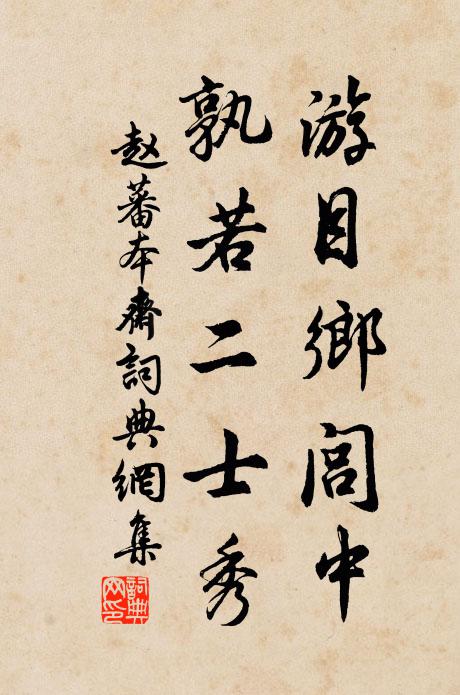 游目鄉閭中
孰若二士秀
赵蕃本齋詞典網集
詞典網印